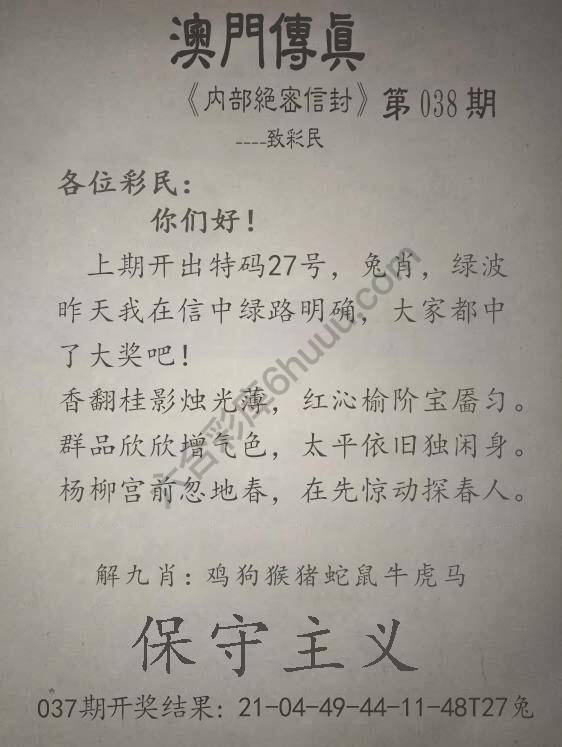 澳門傳真
《内部絕密信封》第038期
----致彩民
各位彩民：
你们好！
上期开出特码27号，兔肖，绿波
昨天我在信中绿路明确，大家都中
了大奖吧！
香翻桂影烛光薄，红沁榆阶宝靥匀。
群品欣欣增气色，太平依旧独闲身。
杨柳宫前忽地春，在先惊动探春人。
解九肖：鸡狗猴猪蛇鼠牛虎马
保守主义
037期开奖结果：21-04-49-44-11-48T27兔
六合彩库6huuu.com